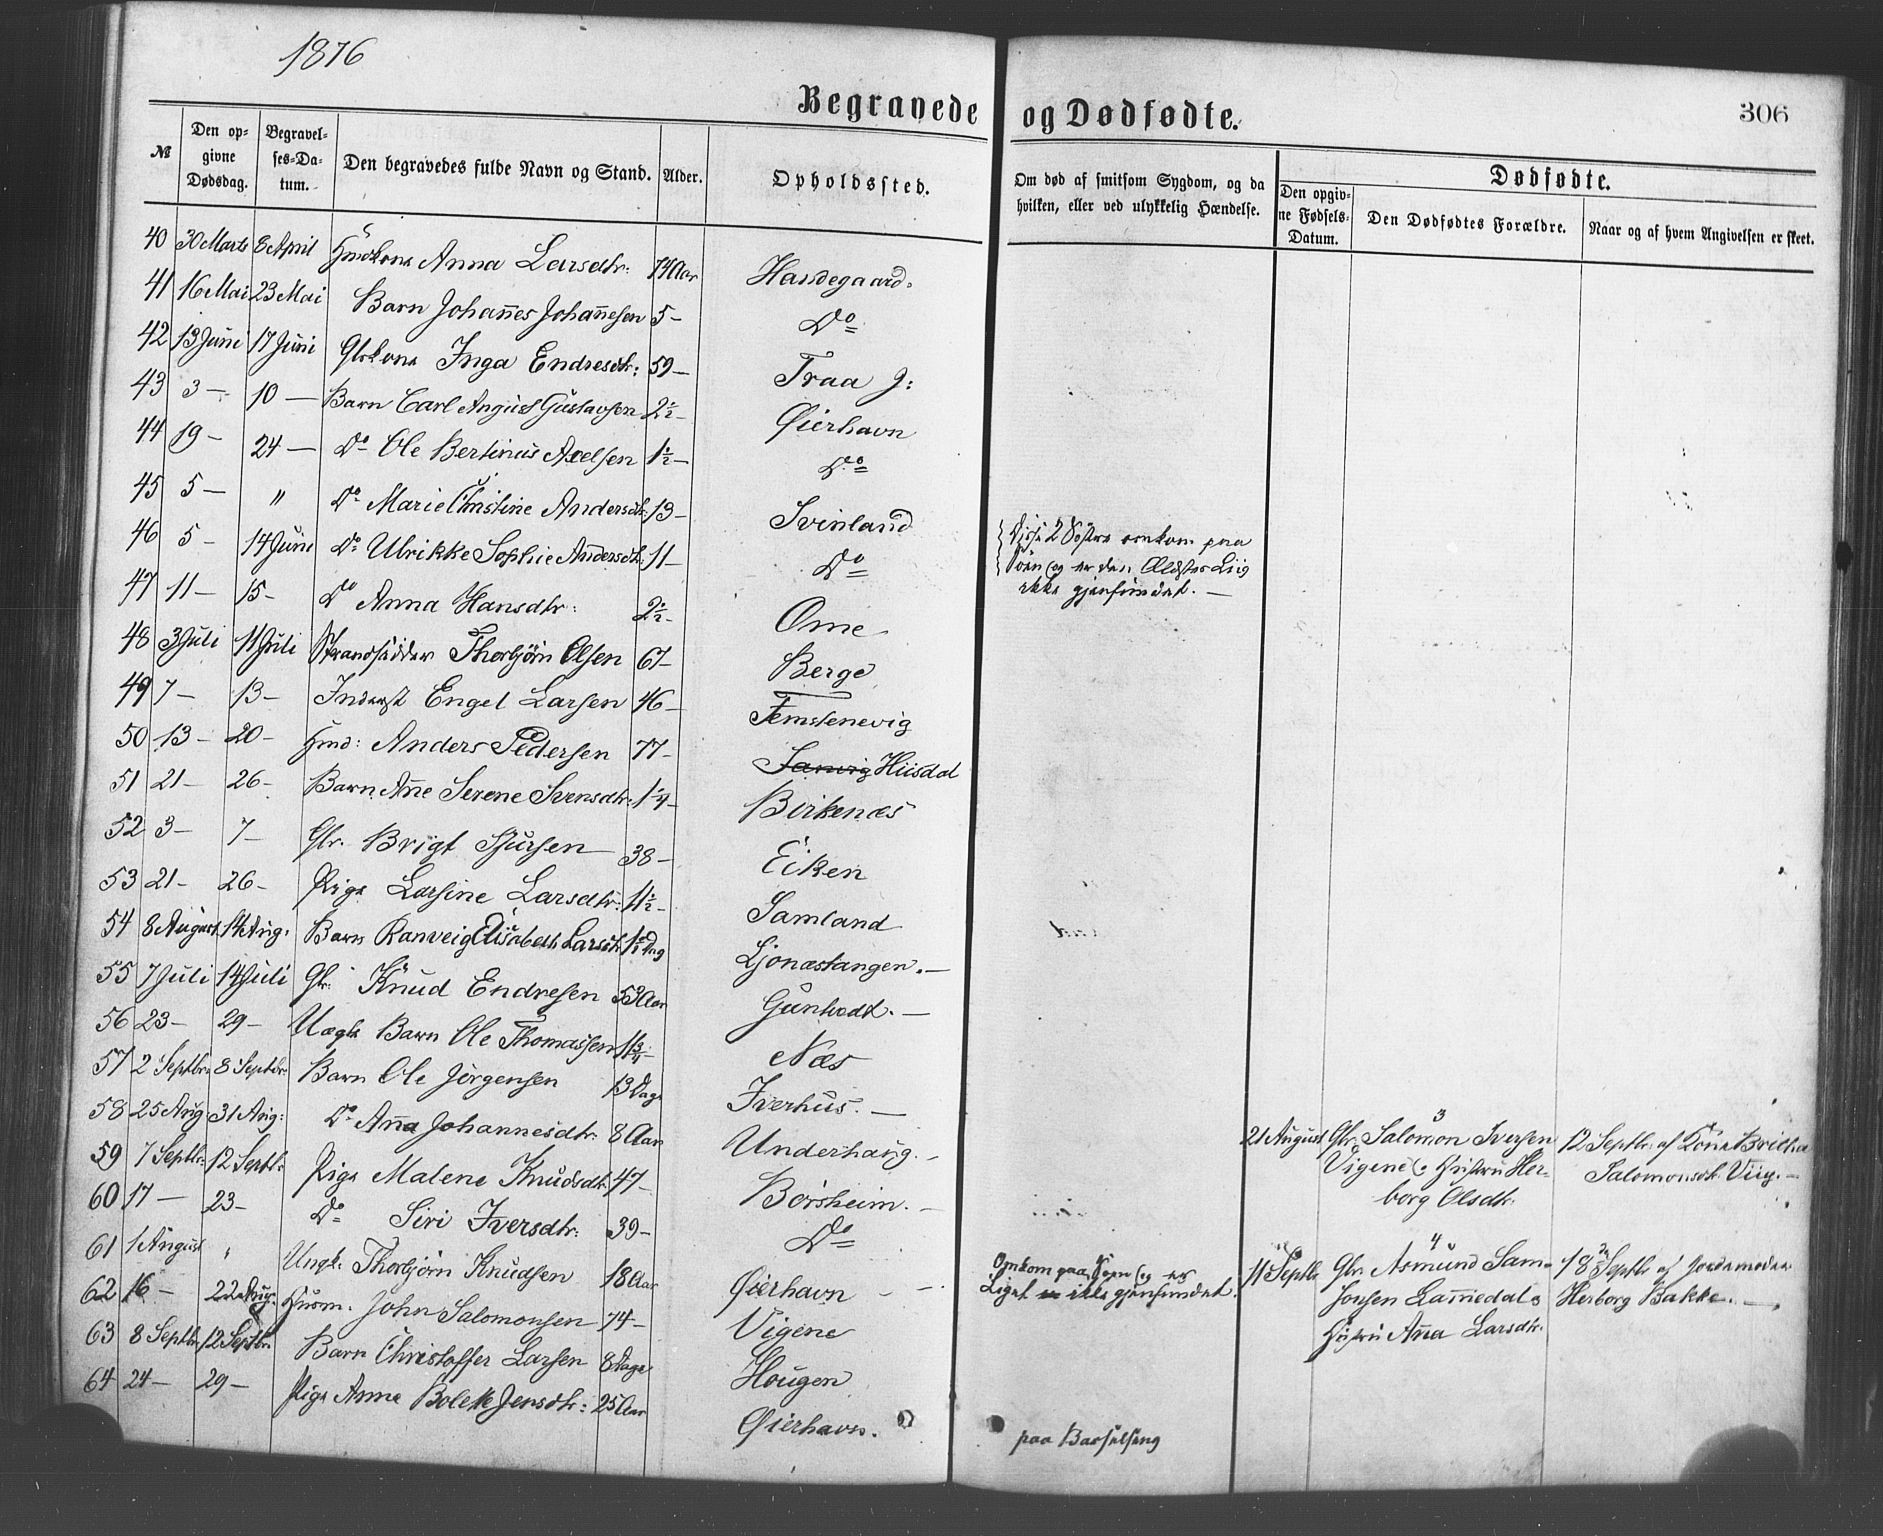 1876
Begravede og Dødfødte.
306
№
Den opgivne Dødsdag.
Begravelses-Datum.
Den begravedes fulde Navn og Stand.
Alder.
Opholdssted.
Om død af smitsom Sygdom, og da hvilken, eller ved ulykkelig Hændelse.
Dødfødte.
Den opgivne Fødsels-Datum.
Den Dødfødtes Forældre.
Naar og af hvem Angivelsen er skeet.
40 30 Marts 8 April Hmdkone Anna Larsdtr: 74 Aar Handegaard.
41 16 Mai 23 Mai Barn Johan̄es Johan̄esen 5 – Do
42 13 Juni 17 Juni Gbrkone Inga Endresdtr: 59 – Traa g:
43 3 – 10 – Barn Carl August Gustavsen 2½ – Øierhavn
44 19 – 24 – Do Ole Bertinus Axelsen 1½ – Do
45 5 – " Do Marie Christine Andersdtr: 13 – Svinland
46 5 – 14 Juni Do Ulrikke Sophie Andersdtr: 11 – Do
Disse 2 Søstre omkom paa
Søen og er den Ældstes Liig
ikke gjenfundet. –
47 11 – 15 – Do Anna Hansdtr: 2½ – Ome
48 3 Juli 11 Juli Strandsidder Thorbjörn Olsen 67 – Berge
49 7 – 13 – Inderst Engel Larsen 46 – Femstenevig
50 13 – 20 – Hmd: Anders Pedersen 77 – Sanvig Husdal
51 21 – 26 – Barn An̄e Serene Svensdtr: 1¼ – Birkenæs
52 3 – 7 – Gbr. Brigt Sjursen 38 – Eiken
53 21 – 26 – Pige Larsine Larsdtr: 11½ – Samland
54 8 August 14 Aug. Barn Ranveig Elisabeth Larsdtr 1½ Dag Ljonæstangen. –
55 7 Juli 14 Juli Gbr: Knud Endresen 53 Aar Gunhodt. –
56 23 – 29 – Uægte Barn Ole Thomassen 1¾ – Næs
57 2 Septbr. 8 Septbr. Barn Ole Jörgensen 13 Dage Iverhus. –
58 25 Aug 31 Aug: Do An̄a Johannesdtr: 8 Aar Underhaug. –
59 7 Septbr. 12 Septbr Pige Malene Knudsdtr. 47 – Börsheim. –
60 17 – 23 – Do Siri Iversdtr: 39 – Do
3
21 August Gbr. Salomon Iversen
Vigene og Hustru Herborg Olsdtr.
12 Septbr. af Kone Britha
Salomonsdtr. Viig. –
61 1 August " Ungk: Thorbjörn Knudsen 18 Aar Øierhavn – –
Omkom paa Søen og er
Liget ikke gjenfundet.
62 16 – 22 Aug. Husm. John Salomonsen 74 – Vigene
4
11 Septbr Gbr. Asmund Samsonsen
Hustru An̄a Larsdtr.
18 Septbr af Jordemoder
Herborg Bakke. –
63 8 Septbr. 12 Septbr. Barn Christoffer Larsen 8 Dage Hougen
64 24 – 29 – Pige Anna Bolette Jensdtr: 25 Aar Øierhavn.
paa Barselseng